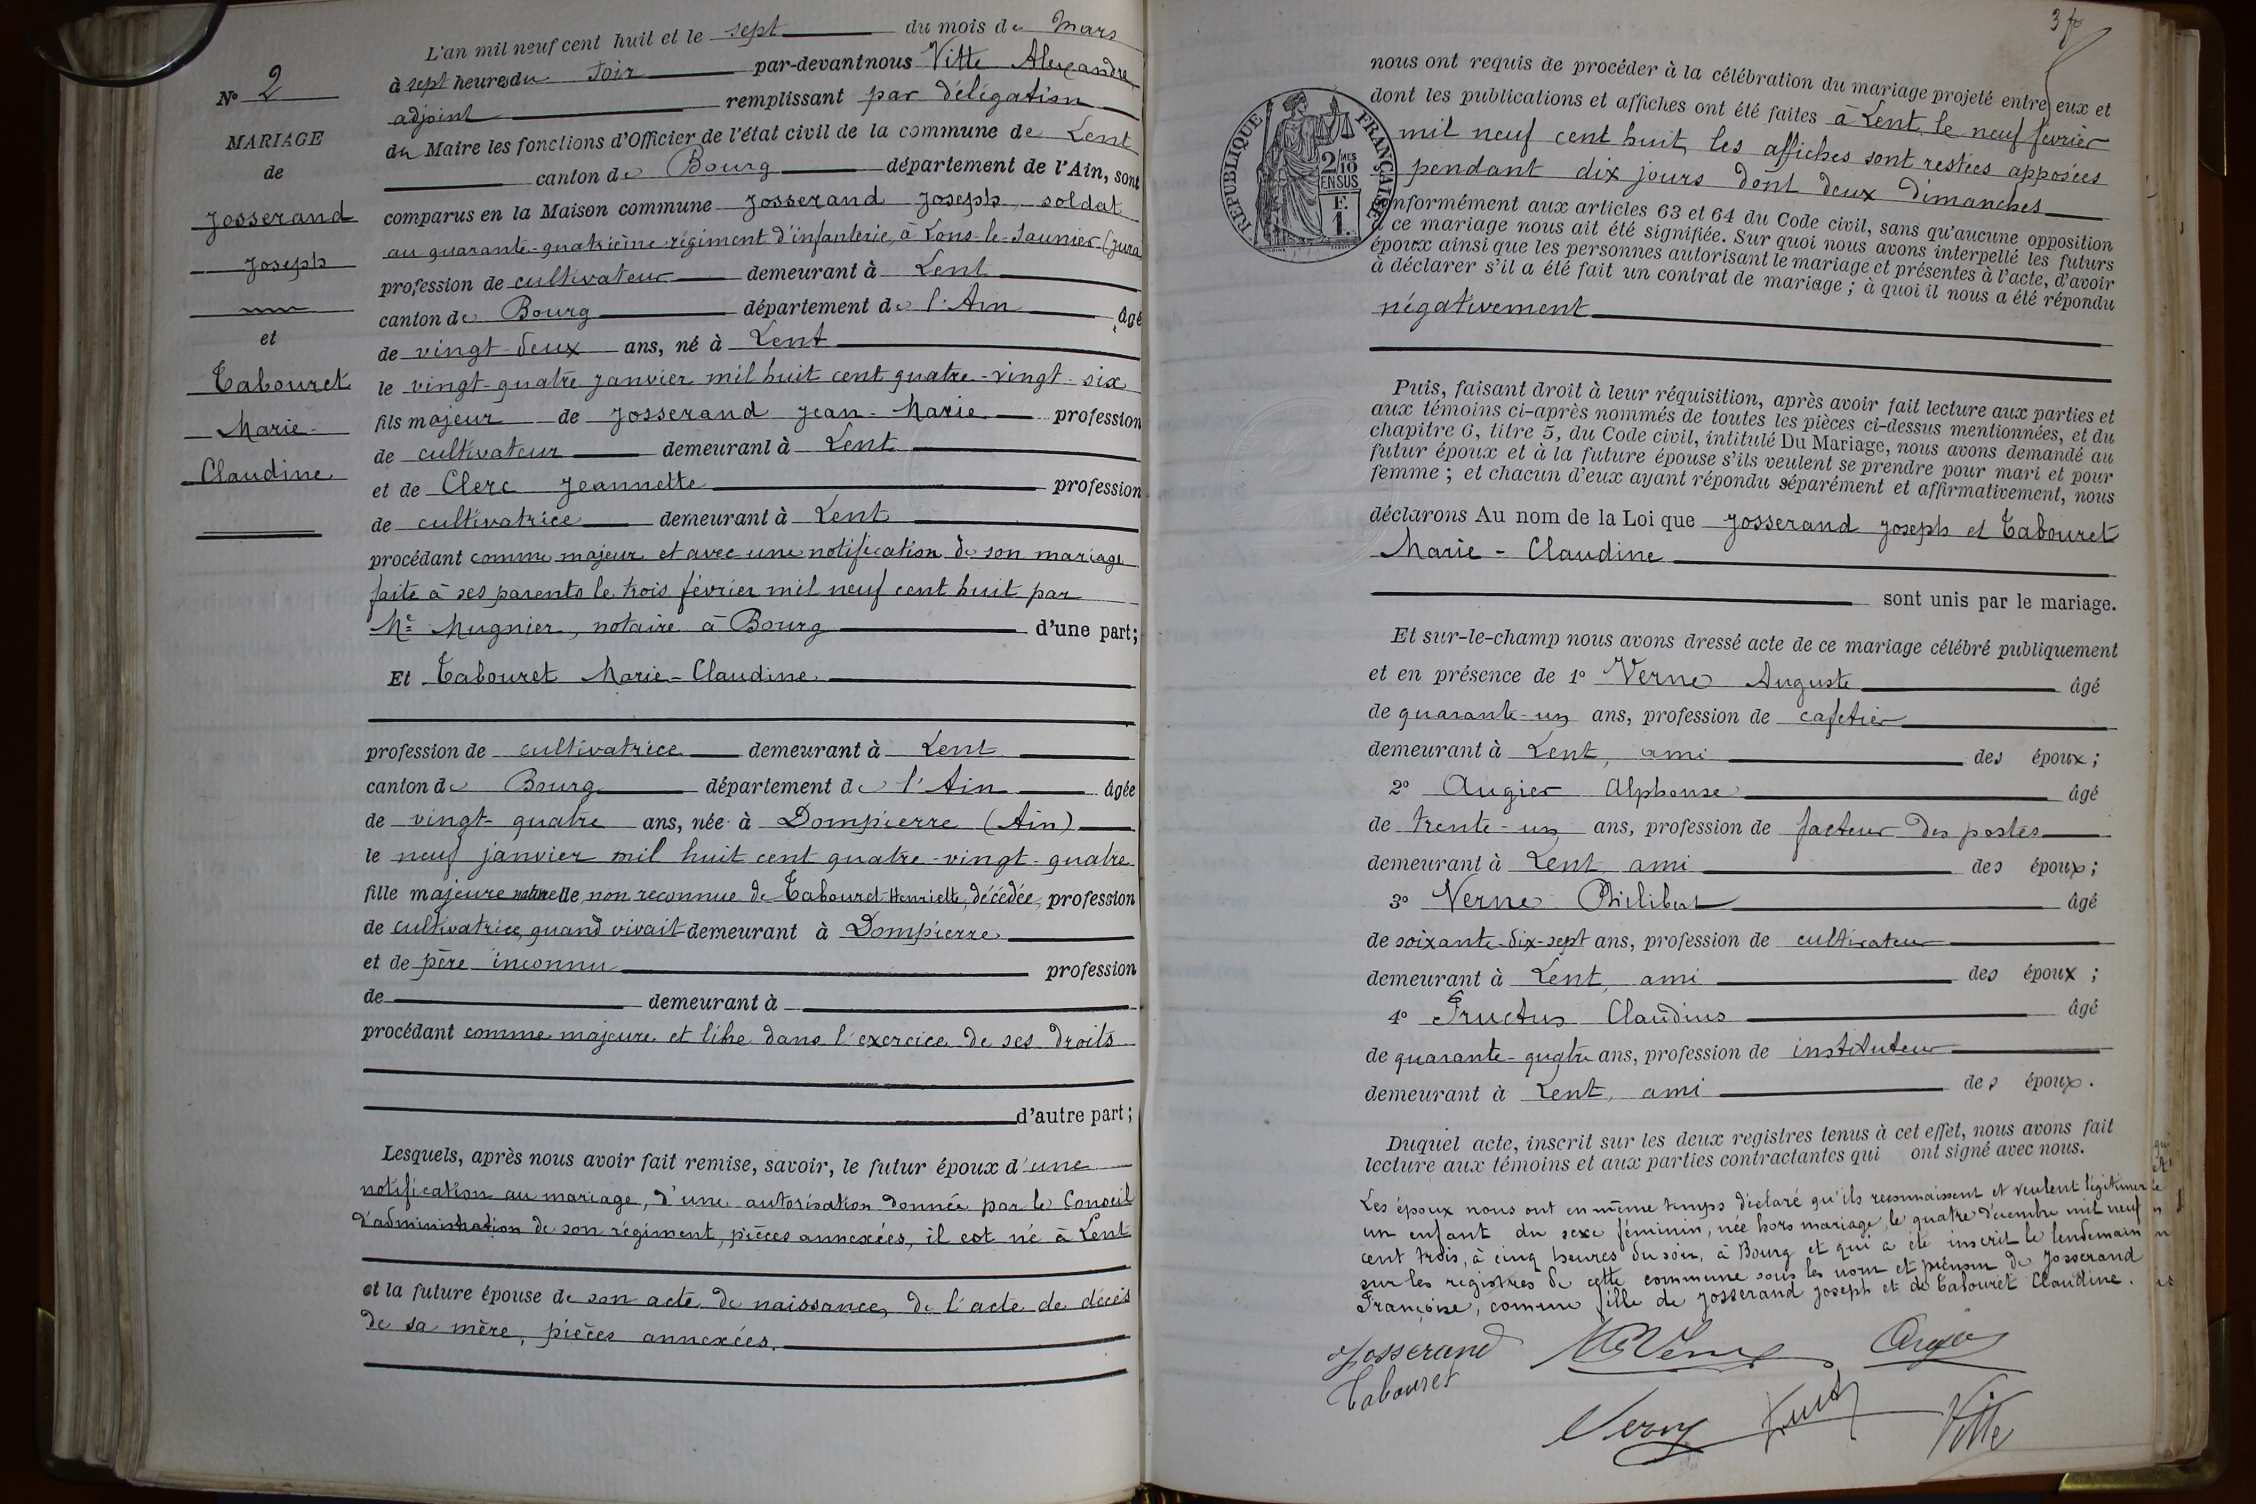 N° 2
MARIAGE
de
Josserand
Joseph
et
Tabouret
Marie-
Claudine
L'an mil neuf cent huit et le sept du mois de Mars
à sept heures du soir par-devant nous Vitte Alexandre
adjoint remplissant par délégation
du Maire les fonctions d'Officier de l'état civil de la commune de Lent
canton de Bourg département de l'Ain, sont
comparus en la Maison commune Josserand Joseph, soldat
au quarante-quatrième régiment d'infanterie, à Lons-le-Saunier (Jura
profession de cultivateur demeurant à Lent
canton de Bourg département de l'Ain âgé
de vingt-deux ans, né à Lent
le vingt-quatre janvier mil huit cent quatre-vingt-six
fils majeur de Josserand Jean-Marie profession
de cultivateur demeurant à Lent
et de Clerc Jeannette profession
de cultivatrice demeurant à Lent
procédant comme majeur et avec une notification de son mariage
faite à ses parents le trois février mil neuf cent huit par
Me Mugnier, notaire à Bourg d'une part;
Et Tabouret Marie-Claudine
profession de cultivatrice demeurant à Lent
canton de Bourg département de l'Ain âgée
de vingt-quatre ans, née à Dompierre (Ain)
le neuf janvier mil huit cent quatre-vingt-quatre
fille majeure naturelle, non reconnue de Tabouret Henriette, décédée, profession
de cultivatrice, quand vivait demeurant à Dompierre
et de père inconnu profession
de demeurant à
procédant comme majeure et libre dans l'exercice de ses droits
d'autre part;
Lesquels, après nous avoir fait remise, savoir, le futur époux d'une
notification au mariage, d'une autorisation donnée par le Conseil
d'administration de son régiment, pièces annexées, il est né à Lent
et la future épouse de son acte de naissance, de l'acte de décès
de sa mère, pièces annexées.
RÉPUBLIQUE FRANÇAISE
2/10 MES
EN SUS
F.
1.
nous ont requis de procéder à la célébration du mariage projeté entre eux et
dont les publications et affiches ont été faites à Lent, le neuf février
mil neuf cent huit, les affiches sont restées apposées
pendant dix jours dont deux dimanches
conformément aux articles 63 et 64 du Code civil, sans qu'aucune opposition
à ce mariage nous ait été signifiée. Sur quoi nous avons interpellé les futurs
époux ainsi que les personnes autorisant le mariage et présentes à l'acte, d'avoir
à déclarer s'il a été fait un contrat de mariage; à quoi il nous a été répondu
négativement
Puis, faisant droit à leur réquisition, après avoir fait lecture aux parties et
aux témoins ci-après nommés de toutes les pièces ci-dessus mentionnées, et du
chapitre 6, titre 5, du Code civil, intitulé Du Mariage, nous avons demandé au
futur époux et à la future épouse s'ils veulent se prendre pour mari et pour
femme; et chacun d'eux ayant répondu séparément et affirmativement, nous
déclarons Au nom de la Loi que Josserand Joseph et Tabouret
Marie-Claudine
sont unis par le mariage.
Et sur-le-champ nous avons dressé acte de ce mariage célébré publiquement
et en présence de 1° Verne Auguste âgé
de quarante-un ans, profession de cafetier
demeurant à Lent, ami des époux;
2° Augier Alphonse âgé
de trente-un ans, profession de facteur des postes
demeurant à Lent ami des époux;
3° Verne Philibert âgé
de soixante-dix-sept ans, profession de cultivateur
demeurant à Lent, ami des époux;
4° Fructus Claudius âgé
de quarante-quatre ans, profession de instituteur
demeurant à Lent, ami des époux.
Duquel acte, inscrit sur les deux registres tenus à cet effet, nous avons fait
lecture aux témoins et aux parties contractantes qui ont signé avec nous.
Les époux nous ont en même temps déclaré qu'ils reconnaissent et veulent légitimer
un enfant du sexe féminin, née hors mariage, le quatre décembre mil neuf
cent trois, à cinq heures du soir, à Bourg et qui a été inscrit le lendemain
sur les registres de cette commune sous les nom et prénom de Josserand
Françoise, comme fille de Josserand Joseph et de Tabouret Claudine.
Josserand
Tabouret
Verne
Vitte